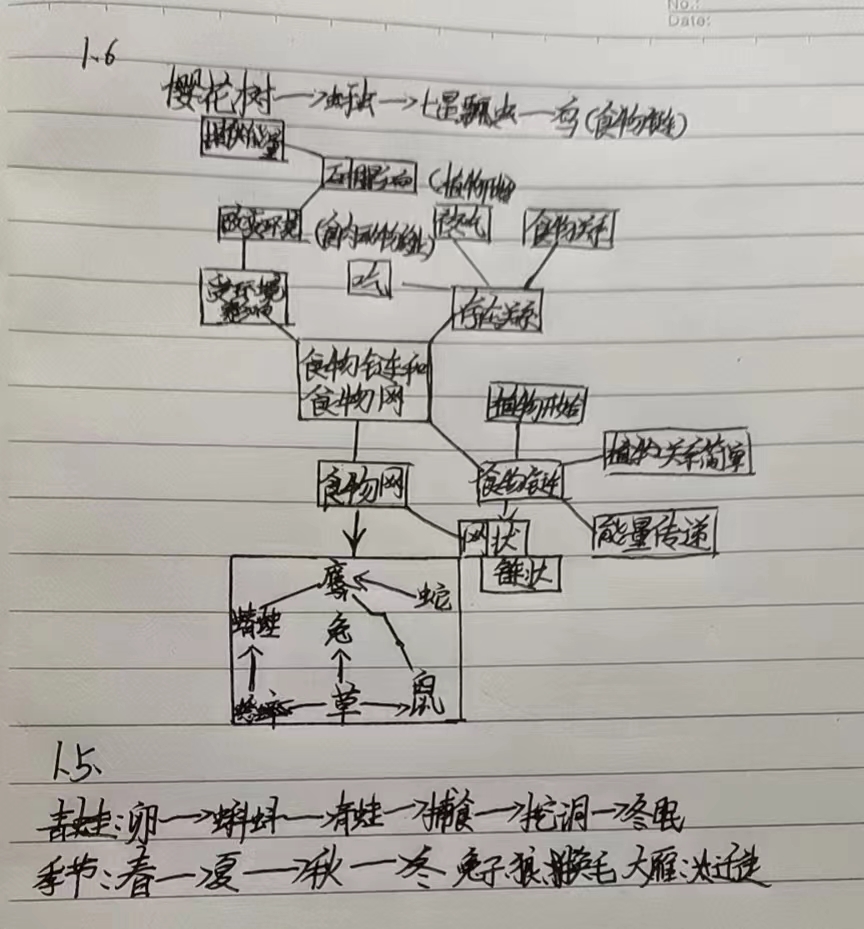 No.:
Date:
1.6
樱花树→蚜虫→七星瓢虫—鸟(食物链)
提供能量
互相影响 (植物开始
改变环境 (食肉动物终止) 被吃 食物关系
受环境影响 吃 存在关系
食物链和
食物网 植物开始
植物关系简单
食物网 食物链
网状 能量传递
链状
鹰 蛇
青蛙 兔
蟋蟀 草 鼠
1.5.
青蛙:卵→蝌蚪—青蛙→捕食→挖洞→冬眠
季节:春—夏→秋—冬 兔子、狼:换毛 大雁:迁徙